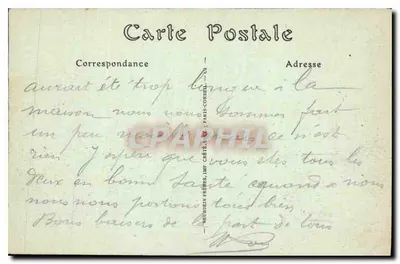 Carte Postale
Correspondance Adresse
aurait été trop longue à la
maison nous nous sommes fait
un peu ce n'est
rien J'espère que vous etes tous les
deux en bonne santé quand a nous
nous nous portons tous bien
Bons baisers de la part de tous
CPAPHIL